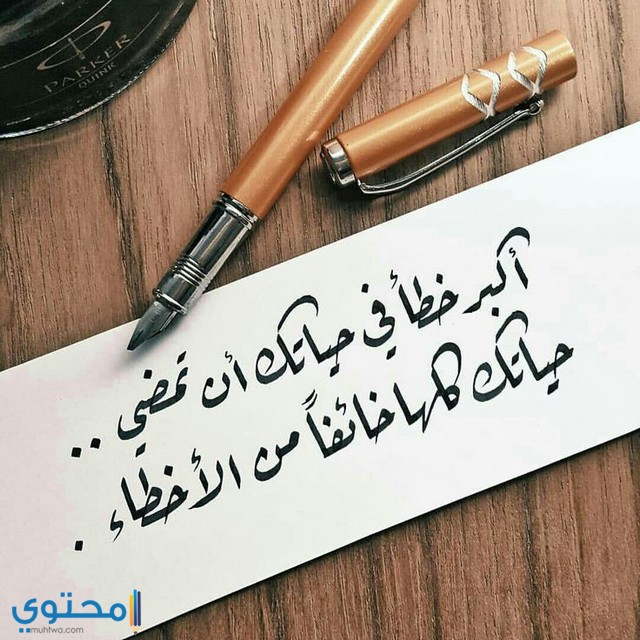 PARKER
QUINK
أكبر خطأ في حياتك أن تمضي ..
حياتك كلها خائفاً من الأخطاء .
محتوي
muhtwa.com